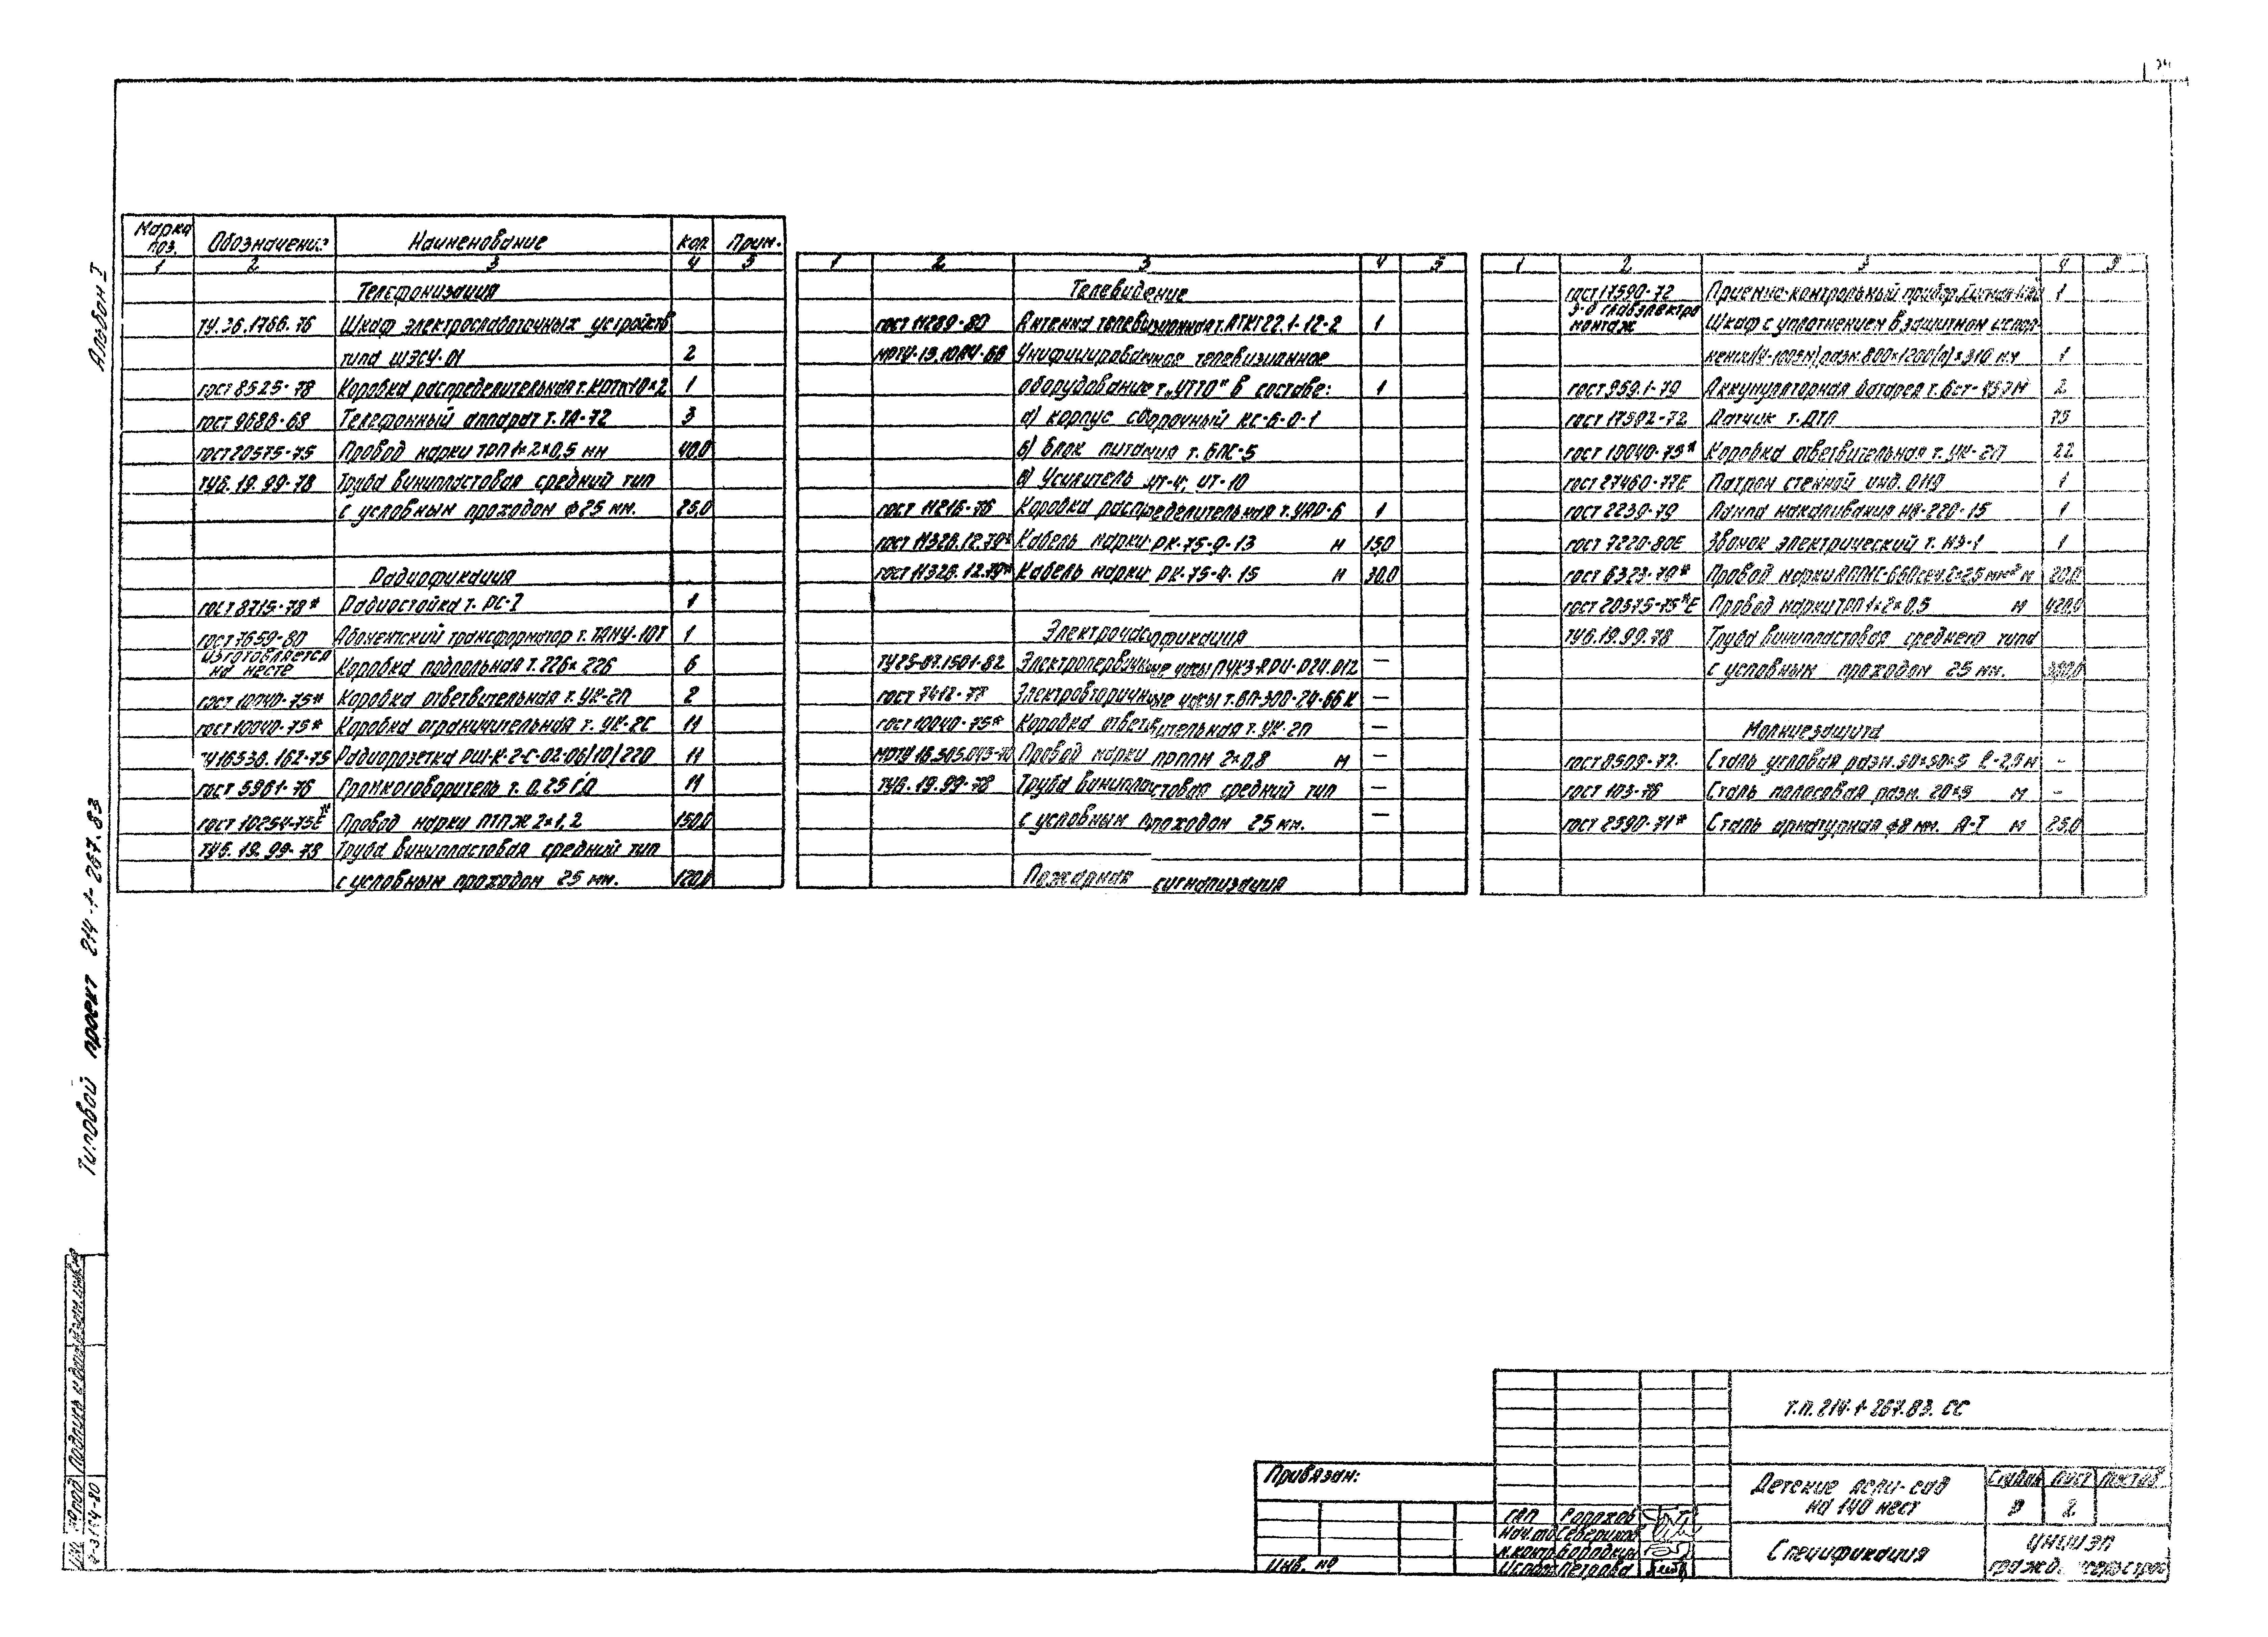 Альбом I
Типовой проект 214-1-267.83
Марка поз. Обозначение Наименование Кол Прим.
1 2 3 4 5
Телефонизация
ТУ.36.1766.76 Шкаф электрослаботочных устройств
типа ШЭСУ-01 2
ГОСТ 8525-78 Коробка распределительная т. 1
ГОСТ 9686-68 Телефонный аппарат т. ТА-72 3
ГОСТ 20575-75 Провод марки ТРП 1×2×0,5 мм 40,0
ТУ6.19.99-78 Труба винипластовая средний тип
с условным проходом ф25 мм. 25,0
Радиофикация
ГОСТ 8715-78* Радиостойка т. РС-I 1
ГОСТ 7659-80 Абонентский трансформатор т. ТАМУ-10Т 1
Изготовляется на месте Коробка подпольная т. 226×226 6
ГОСТ 10040-75* Коробка ответвительная т. УК-2П 2
ГОСТ 10040-75* Коробка ограничительная т. УК-2С 11
ТУ16538.162-75 Радиорозетка РШ-К-2-С-02-06/10/220 11
ГОСТ 5961-76 Громкоговоритель т. 0,25 ГД 11
ГОСТ 10254-75Е* Провод марки ПТПЖ 2×1,2 150,0
ТУ6.19.99-78 Труба винипластовая средний тип
с условным проходом 25 мм. 120,0
1 2 3 4 5
Телевидение
ГОСТ 11289-80 Антенна телевизионная т. АТКГ22.1-12-2 1
Унифицированное телевизионное
оборудование т. „УТТО" в составе: 1
а) корпус сборочный КС-6-0-1
б) блок питания т. БПС-5
в) Усилитель УТ-4; УТ-10
ГОСТ 11216-76 Коробка распределительная т. УАР-6 1
ГОСТ 11326.12.79* Кабель марки РК-75-9-13 м 15,0
ГОСТ 11326.12.79* Кабель марки РК-75-4-15 м 30,0
Электрочасофикация
ТУ25-07.1501-82 Электропервичные часы —
ГОСТ 7412-77 Электровторичные часы т. ВП-300-24-66К —
ГОСТ 10040-75* Коробка ответвительная т. УК-2П —
МРТУ 16.505.043-70 Провод марки ПРППМ 2×0,8 м —
ТУ6.19.99-78 Труба винипластовая средний тип —
с условным проходом 25 мм. —
Пожарная сигнализация
1 2 3 4 5
ГОСТ 17590-72 Приемно-контрольный прибор 1
з-д Главэлектромонтаж Шкаф с уплотнением в защитном испол-
разм. 800×1200(h)×310 мм 1
ГОСТ 959.1-79 Аккумуляторная батарея т. 2
ГОСТ 17592-72 Датчик т. ДТЛ 75
ГОСТ 10040-75* Коробка ответвительная т. УК-2П 22
ГОСТ 27460-77Е Патрон стенной инд. 1
ГОСТ 2239-79 Лампа накаливания 220-15 1
ГОСТ 7220-80Е Звонок электрический т. МЗ-1 1
ГОСТ 6323-79* Провод марки сеч. 2×2,5 мм² м 20,0
ГОСТ 20575-75*Е Провод марки ТРП 1×2×0,5 м 420,0
ТУ6.19.99.78 Труба винипластовая среднего типа
с условным проходом 25 мм.
Молниезащита
ГОСТ 8509-72 Сталь угловая разм. 50×50×5 м –
ГОСТ 103-76 Сталь полосовая разм. м –
ГОСТ 2590-71* Сталь арматурная ф8 мм. А-I м 25,0
Т.П. 214-1-267.83. СС
Привязан:
Инв. №
Детские ясли-сад
на 140 мест
Стадия Лист Листов
Р 2
ГАП
Нач. отд
Н.контр Бородкин
Исполн Петрова
Спецификация
ЦНИИЭП
гражд. сельстрой
Подпись и дата